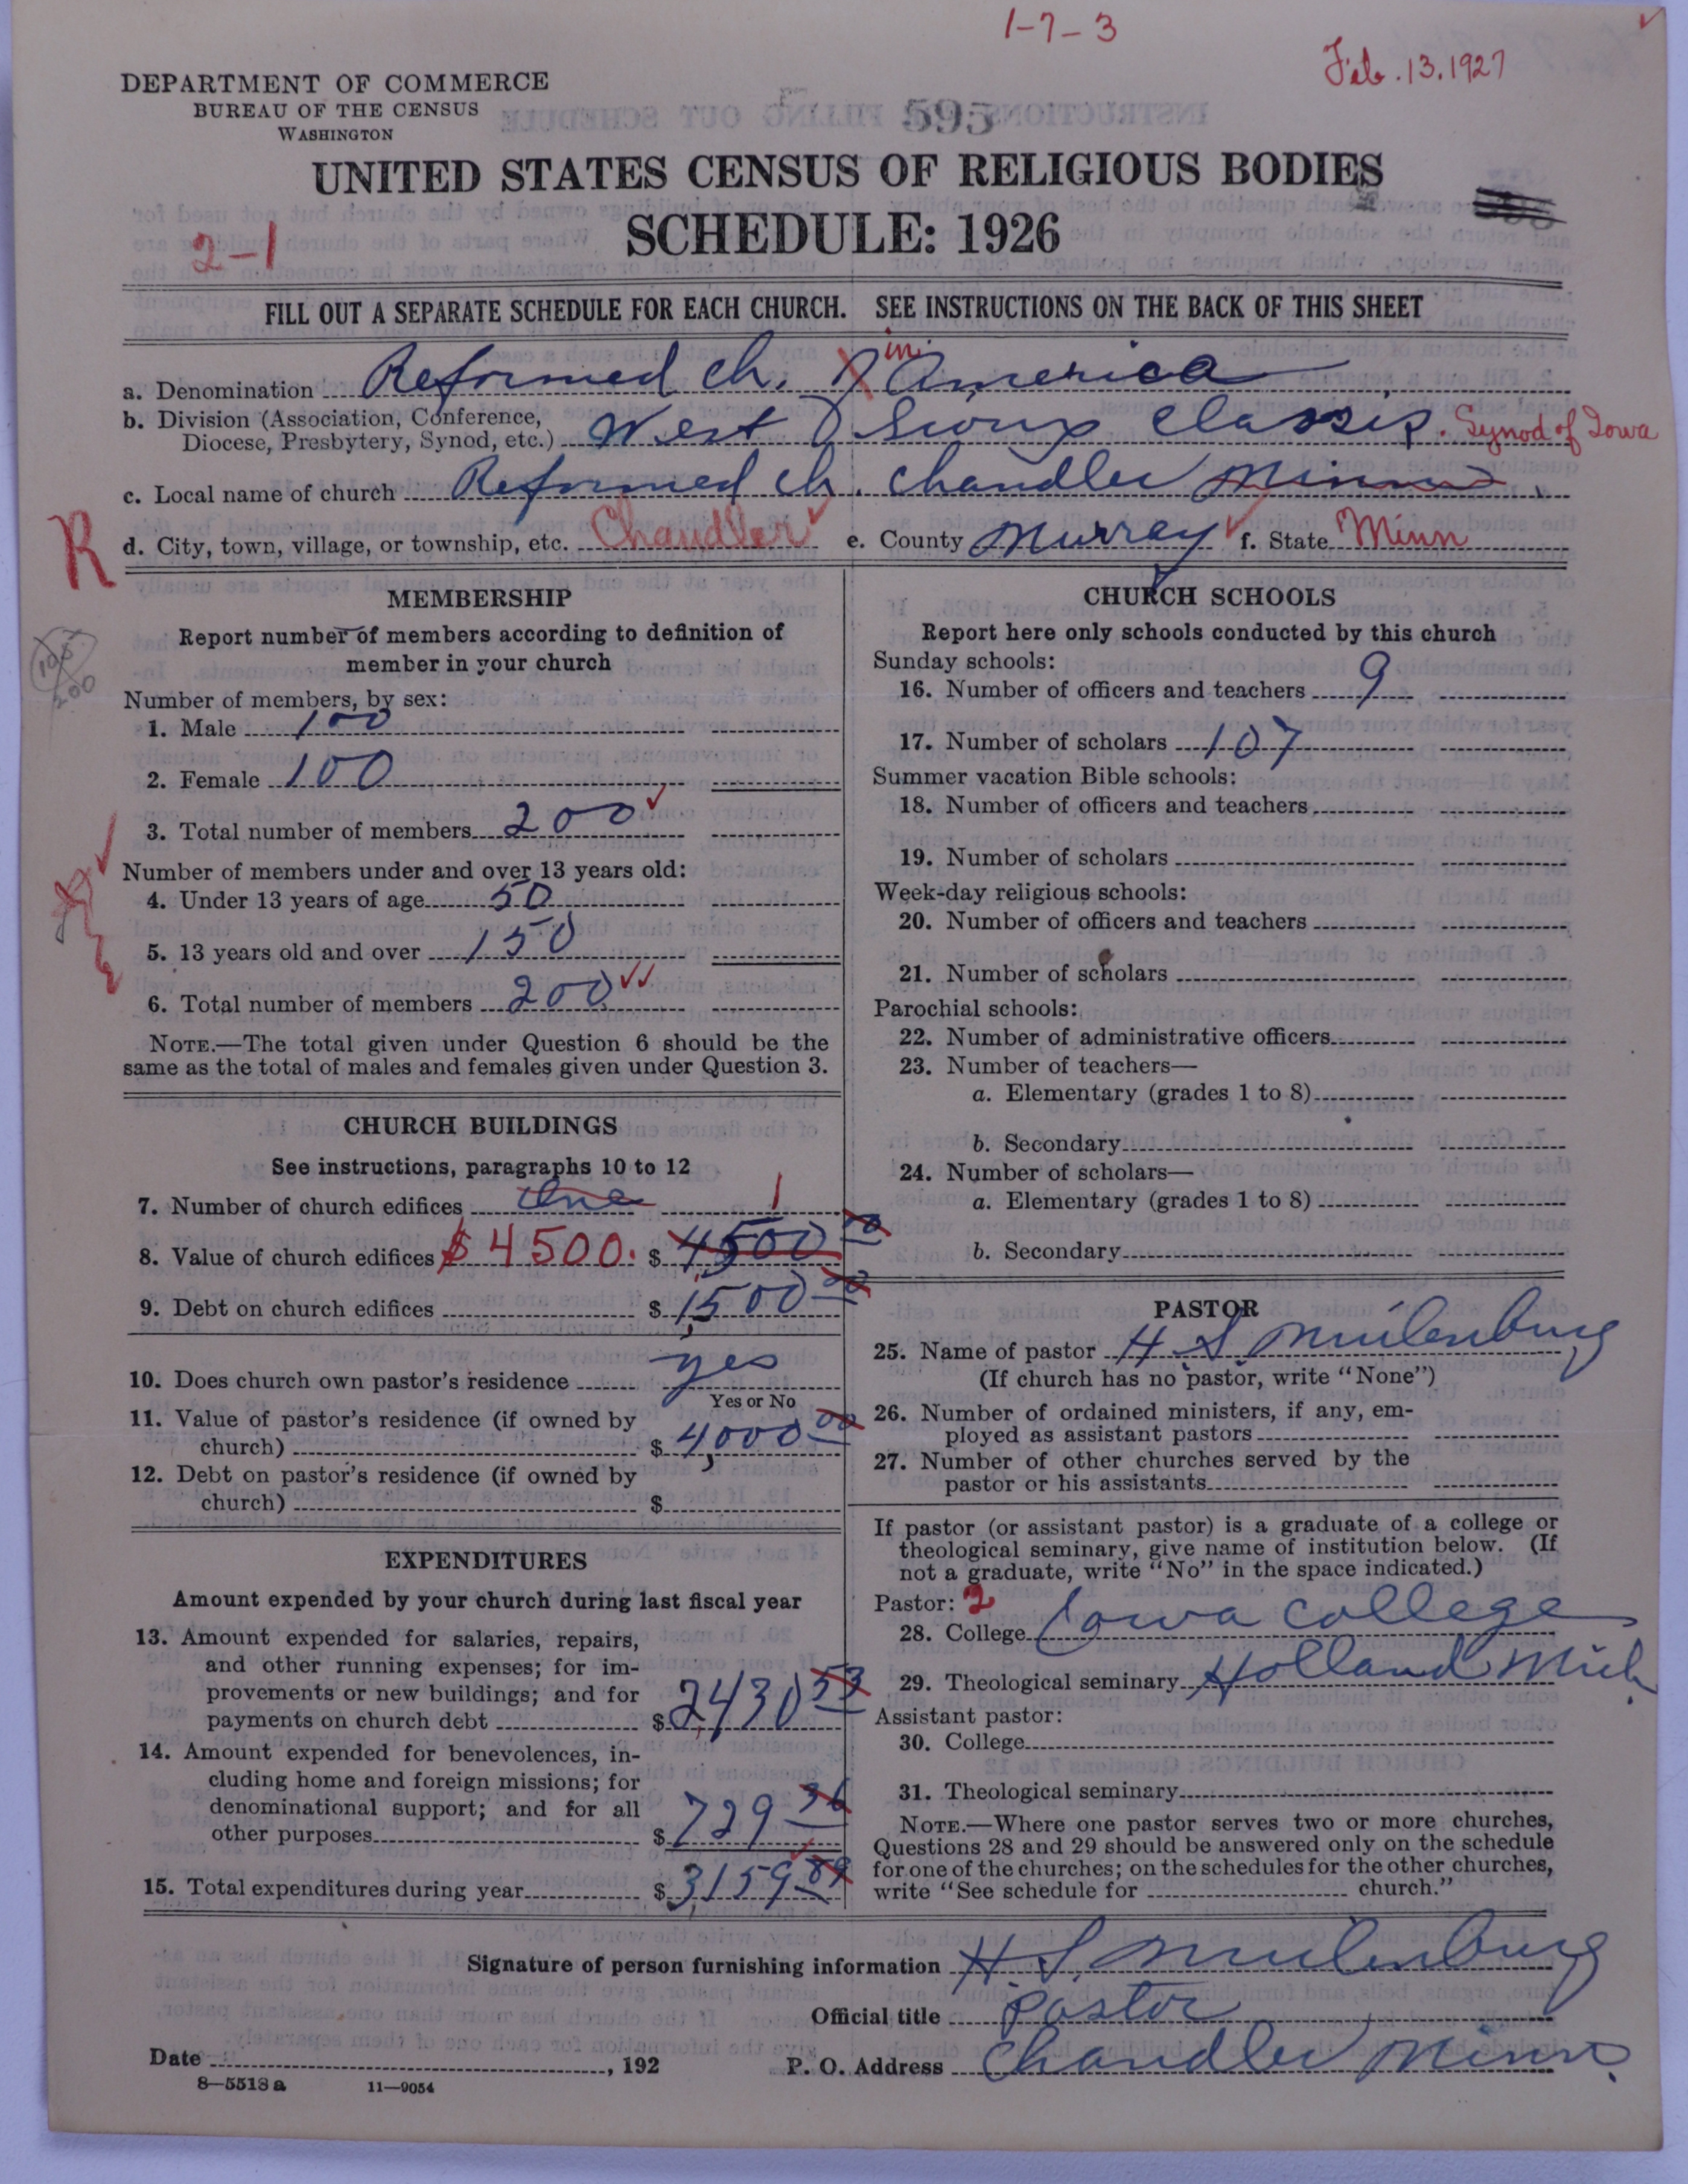 1-7-3
Feb. 13. 1927
DEPARTMENT OF COMMERCE
BUREAU OF THE CENSUS
WASHINGTON
595
UNITED STATES CENSUS OF RELIGIOUS BODIES
SCHEDULE: 1926
2-1
FILL OUT A SEPARATE SCHEDULE FOR EACH CHURCH. SEE INSTRUCTIONS ON THE BACK OF THIS SHEET
a. Denomination Reformed Ch. in America
b. Division (Association, Conference,
Diocese, Presbytery, Synod, etc.) West Sioux Classis. Synod of Iowa
c. Local name of church Reformed Ch. Chandler Minn
R
d. City, town, village, or township, etc. Chandler e. County Murray f. State Minn
MEMBERSHIP
Report number of members according to definition of
member in your church
200
Number of members, by sex:
1. Male 100
2. Female 100
3. Total number of members 200
Number of members under and over 13 years old:
4. Under 13 years of age 50
5. 13 years old and over 150
6. Total number of members 200
NOTE.—The total given under Question 6 should be the
same as the total of males and females given under Question 3.
CHURCH BUILDINGS
See instructions, paragraphs 10 to 12
7. Number of church edifices One 1
8. Value of church edifices $4500. $4500 00
9. Debt on church edifices $1,500 00
10. Does church own pastor's residence yes
Yes or No
11. Value of pastor's residence (if owned by
church) $4,000 00
12. Debt on pastor's residence (if owned by
church) $
EXPENDITURES
Amount expended by your church during last fiscal year
13. Amount expended for salaries, repairs,
and other running expenses; for im-
provements or new buildings; and for
payments on church debt $2,430 53
14. Amount expended for benevolences, in-
cluding home and foreign missions; for
denominational support; and for all
other purposes $729 36
15. Total expenditures during year $3,159 89
CHURCH SCHOOLS
Report here only schools conducted by this church
Sunday schools:
16. Number of officers and teachers 9
17. Number of scholars 107
Summer vacation Bible schools:
18. Number of officers and teachers
19. Number of scholars
Week-day religious schools:
20. Number of officers and teachers
21. Number of scholars
Parochial schools:
22. Number of administrative officers
23. Number of teachers—
a. Elementary (grades 1 to 8)
b. Secondary
24. Number of scholars—
a. Elementary (grades 1 to 8)
b. Secondary
PASTOR
25. Name of pastor H. S. Muilenburg
(If church has no pastor, write "None")
26. Number of ordained ministers, if any, em-
ployed as assistant pastors
27. Number of other churches served by the
pastor or his assistants
If pastor (or assistant pastor) is a graduate of a college or
theological seminary, give name of institution below. (If
not a graduate, write "No" in the space indicated.)
Pastor: 2
28. College Iowa College
29. Theological seminary Holland Mich.
Assistant pastor:
30. College
31. Theological seminary
NOTE.—Where one pastor serves two or more churches,
Questions 28 and 29 should be answered only on the schedule
for one of the churches; on the schedules for the other churches,
write "See schedule for church."
Signature of person furnishing information H. S. Muilenburg
Official title Pastor
Date , 192 P. O. Address Chandler Minn.
8-5513a 11-9054